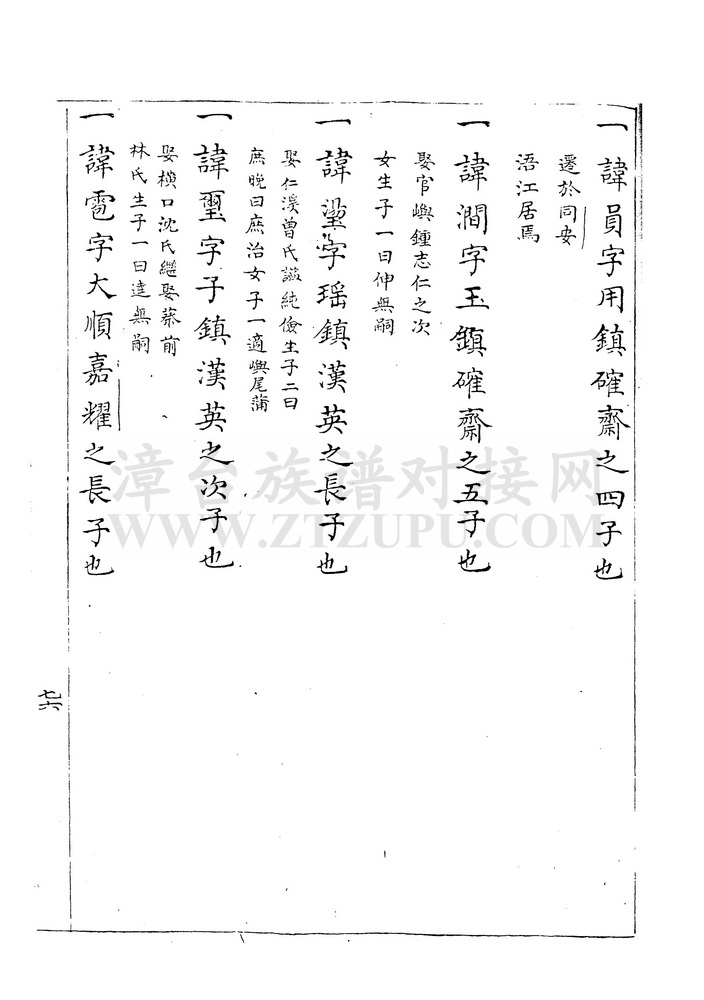 一諱員字用鎮確齋之四子也
遷於同安
浯江居焉
一諱澗字玉鎮確齋之五子也
娶官嶼鍾志仁之次
女生子一曰仲無嗣
一諱瑬字瑶鎮漢英之長子也
娶仁溪曾氏謚純儉生子二曰
庶晚曰庶治女子一適嶼尾蒲
一諱璽字子鎮漢英之次子也
娶橫口沈氏繼娶蔡前
林氏生子一曰逵無嗣
一諱雹字大順嘉耀之長子也
七六
漳台族谱对接网
WWW.ZTZUPU.COM